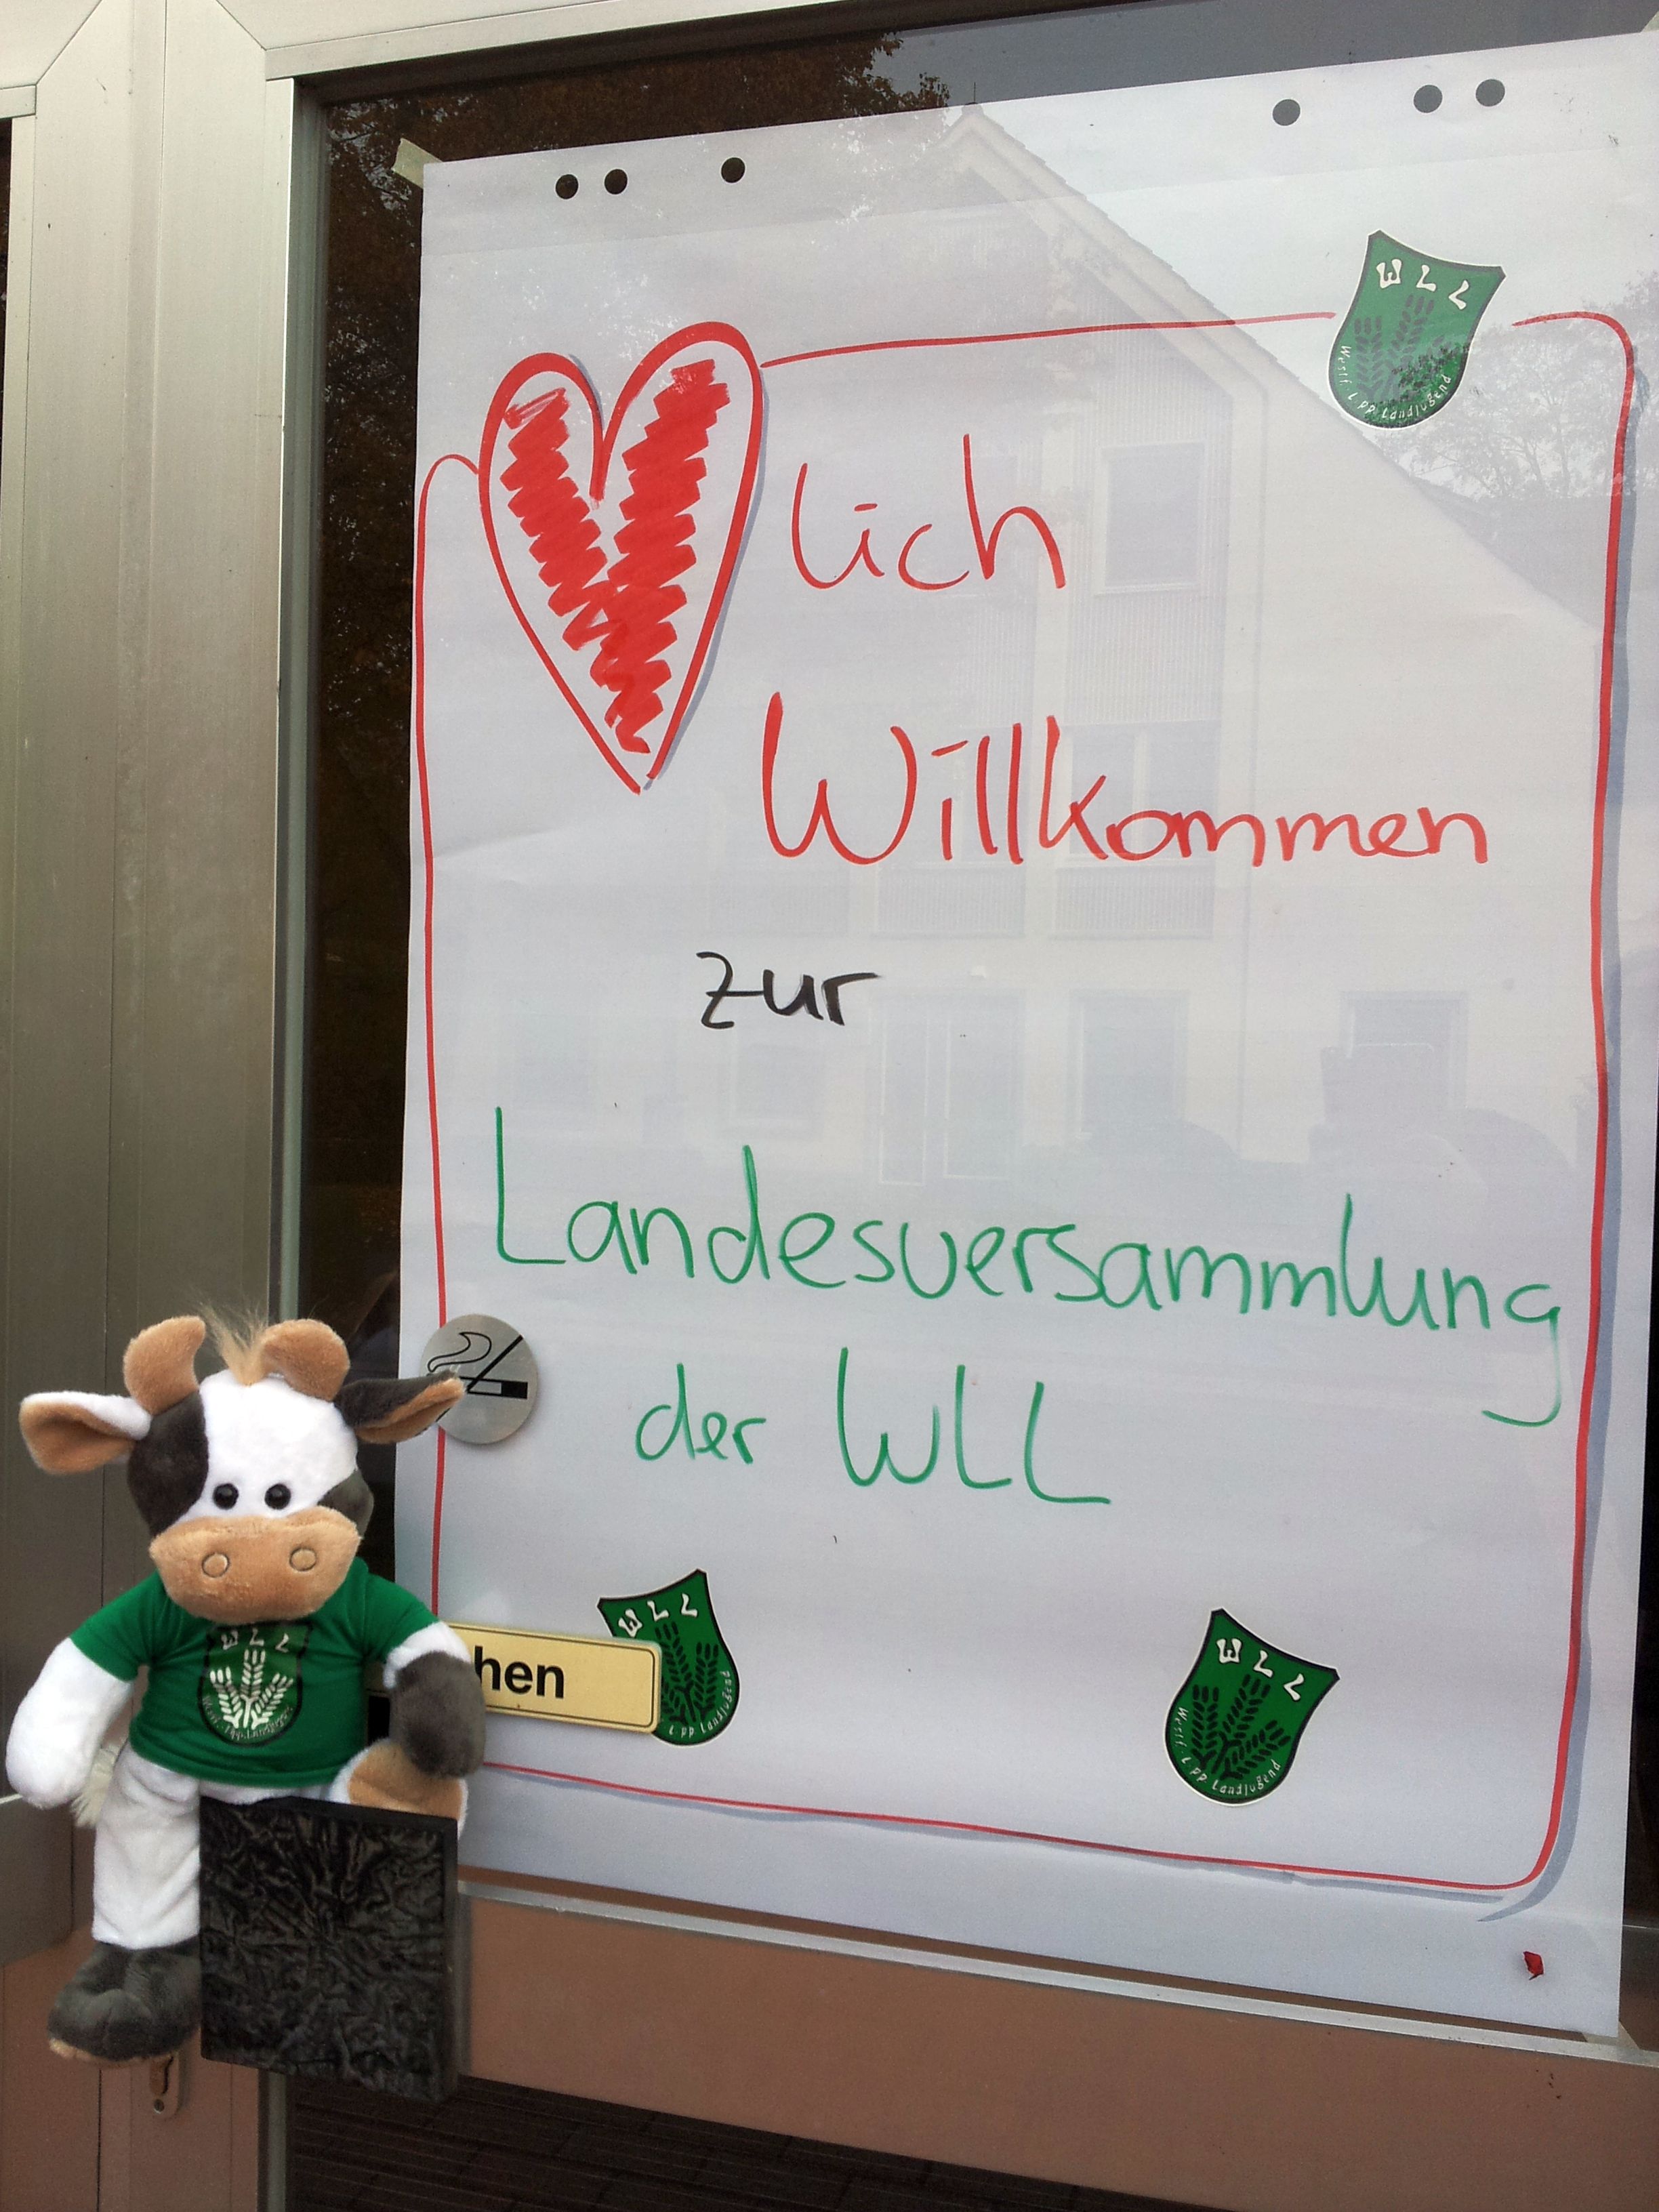 WLL
Westf. Lipp. Landjugend
lich
Willkommen
zur
Landesversammlung
der WLL
WLL
Lipp. Landjugend
hen
WLL
Westf. Lipp. Landjugend
WLL
Westf. Lipp. Landjugend